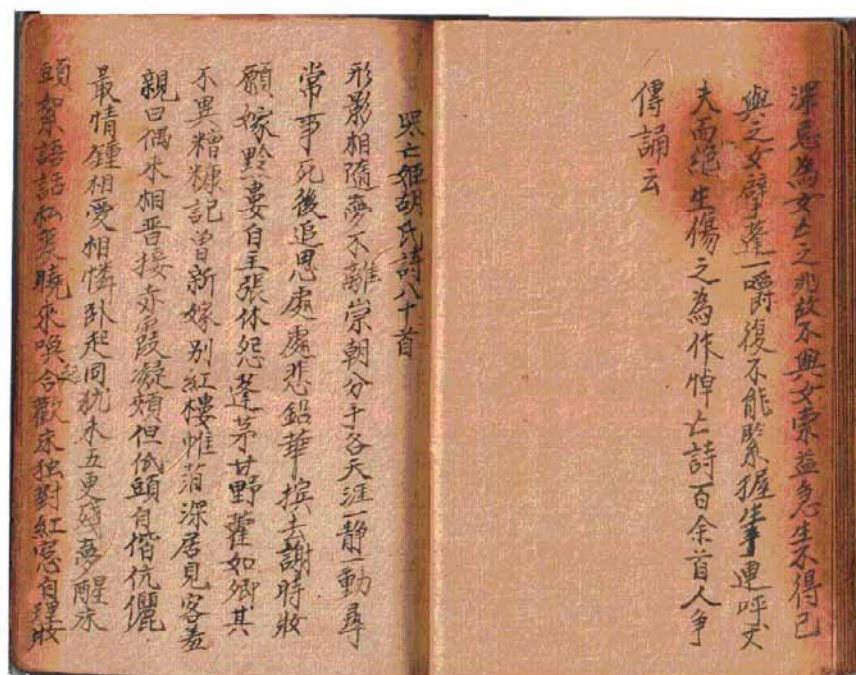 深忌為女亡之兆故不與女索益急生不得已
與之女擘蓬一嚼復不能緊握生手連呼丈
夫而絶生傷之為作悼亡詩百余首人爭
傳誦云
哭亡姬胡氏詩八十首
形影相隨夢不離崇朝分手各天涯一靜一動尋
常事死後追思處處悲鉛華擯去謝時妝
願嫁黔婁自主張休怨蓬茅甘野藿如卿其
不異糟糠記曾新嫁别紅樓帷箔深居見客羞
親曰偶未相晋接赤霞凝頰但低頭自偕伉儷
最情鍾相愛相憐卧起同犹未五更殘夢醒床
頭絮語話私衷曉來喚起合歡床独對紅窓自理妝